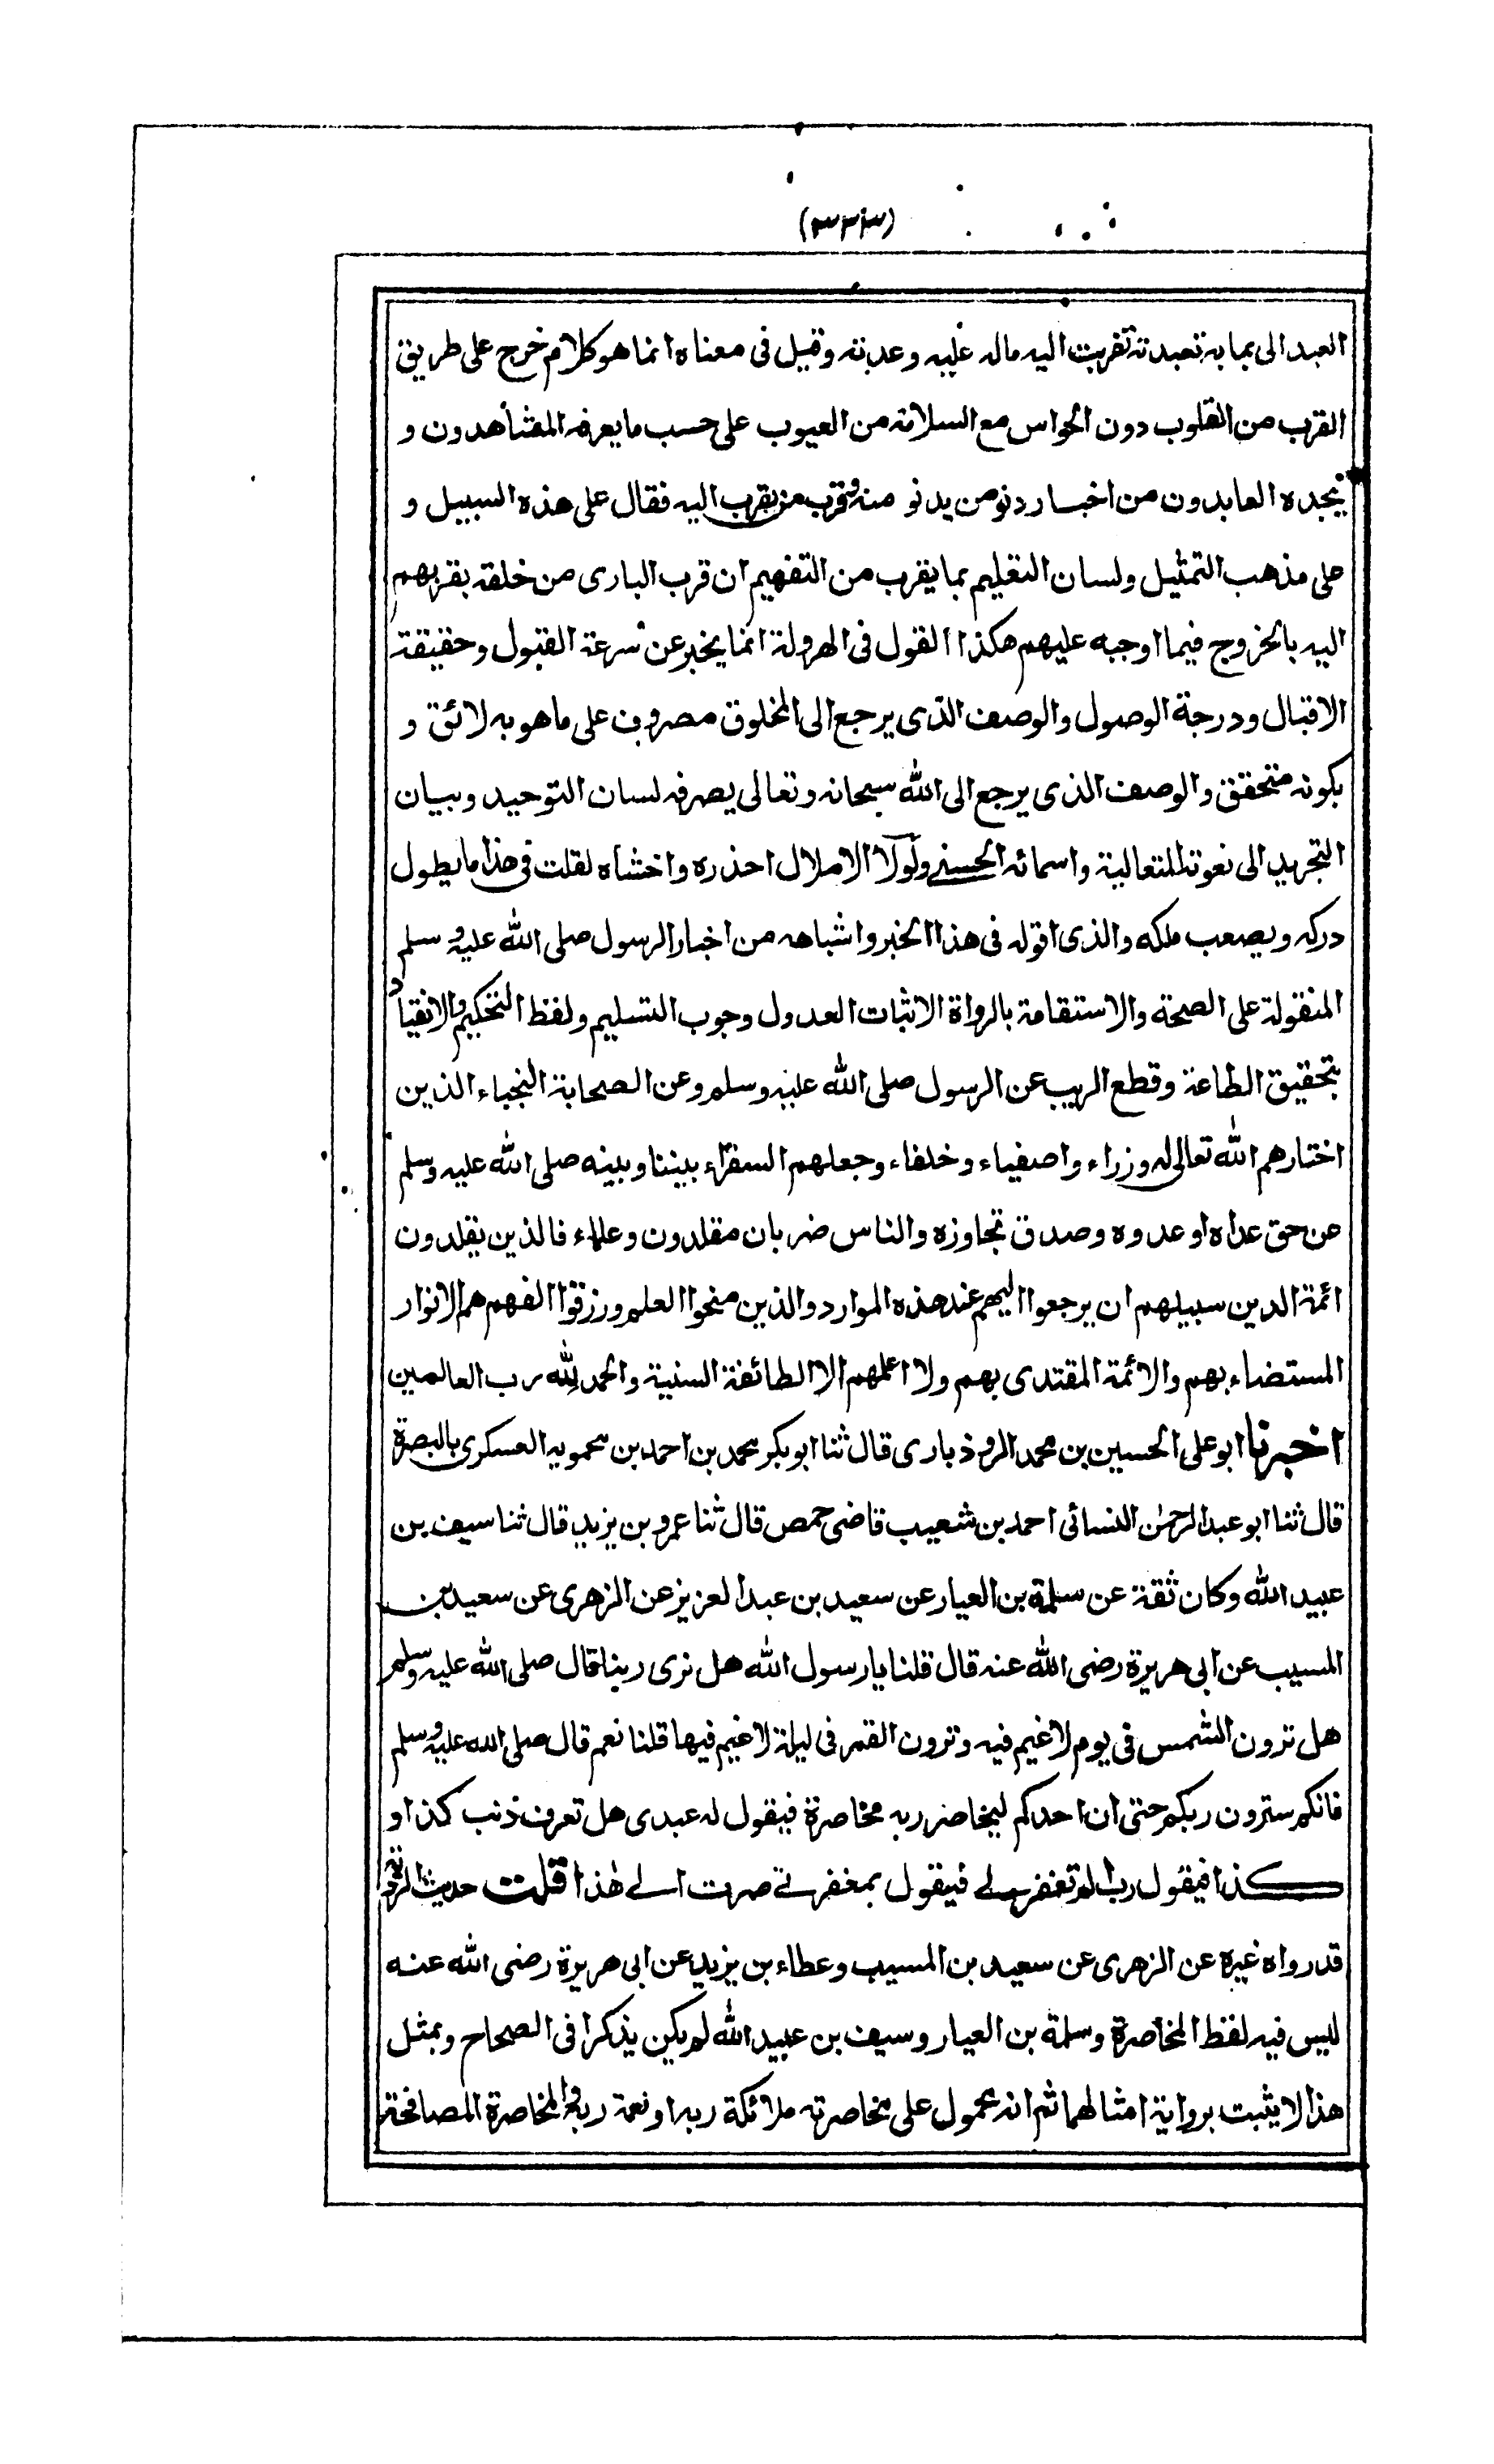 (٣٣٣)
العبد الى بما به تعبدته تقربت اليه ماله عليه وعدته وقيل فى معناه انما هو كلام خرج على طريق
القرب من القلوب دون الحواس مع السلامة من العيوب على حسب ما يعرفه المشاهدون و
يجده العابدون من اخبار دنو من يدنو منه وقرب من يقرب اليه فقال على هذه السبيل و
على مذهب التمثيل ولسان التعليم بما يقرب من التفهيم ان قرب البارى من خلقه بقربهم
اليه بالخروج فيما اوجبه عليهم هكذا القول فى الهرولة انما يخبر عن سرعة القبول وحقيقة
الاقبال ودرجة الوصول والوصف الذى يرجع الى المخلوق مصروف على ما هو به لائق و
بكونه متحقق والوصف الذى يرجع الى الله سبحانه وتعالى يصرفه لسان التوحيد وبيان
التجريد الى نعوته المتعالية واسمائه الحسنے ولولا الاملال احذره واخشاه لقلت فى هذا ما يطول
دركه ويصعب ملكه والذى اقوله فى هذا الخبر واشباهه من اخبار الرسول صلى الله عليه وسلم
المنقولة على الصحة والاستقامة بالرواة الاثبات العدول وجوب التسليم ولفظ التحكيم والانقياد
بتحقيق الطاعة وقطع الريب عن الرسول صلى الله عليه وسلم وعن الصحابة النجباء الذين
اختارهم الله تعالى له وزراء واصفياء وخلفاء وجعلهم السفراء بيننا وبينه صلى الله عليه وسلم
عن حق عداه او عدوه وصدق تجاوزه والناس ضربان مقلدون وعلماء فالذين يقلدون
ائمة الدين سبيلهم ان يرجعوا اليهم عند هذه الموارد والذين منحوا العلم ورزقوا الفهم هم الانوار
المستضاء بهم والائمة المقتدى بهم ولا اعلمهم الا الطائفة السنية والحمد لله رب العالمين
اخبرنا ابو على الحسين بن محمد الروذبارى قال ثنا ابوبكر محمد بن احمد بن محمويه العسكرى بالبصرة
قال ثنا ابو عبد الرحمٰن النسائى احمد بن شعيب قاضى حمص قال ثنا عمرو بن يزيد قال ثنا سيف بن
عبيد الله وكان ثقة عن سلمة بن العيار عن سعيد بن عبد العزيز عن الزهرى عن سعيد بن
المسيب عن ابى هريرة رضى الله عنه قال قلنا يا رسول الله هل نرى ربنا قال صلى الله عليه وسلم
هل ترون الشمس فى يوم لا غيم فيه وترون القمر فى ليلة لا غيم فيها قلنا نعم قال صلى الله عليه وسلم
فانكم سترون ربكم حتى ان احدكم ليخاصر ربه مخاصرة فيقول له عبدى هل تعرف ذنب كذا و
كذا فيقول رب الم تغفر لے فيقول بمغفرتے صرت الے هٰذا قلت حديث الرؤية
قد رواه غيره عن الزهرى عن سعيد بن المسيب وعطاء بن يزيد عن ابى هريرة رضى الله عنه
ليس فيه لفظ المخاصرة وسلمة بن العيار وسيف بن عبيد الله لم يكن يذكرا فى الصحاح وبمثل
هذا لا يثبت برواية امثالهما ثم انه محمول على مخاصرته ملائكة ربه او نعمة ربه والمخاصرة المصافحة